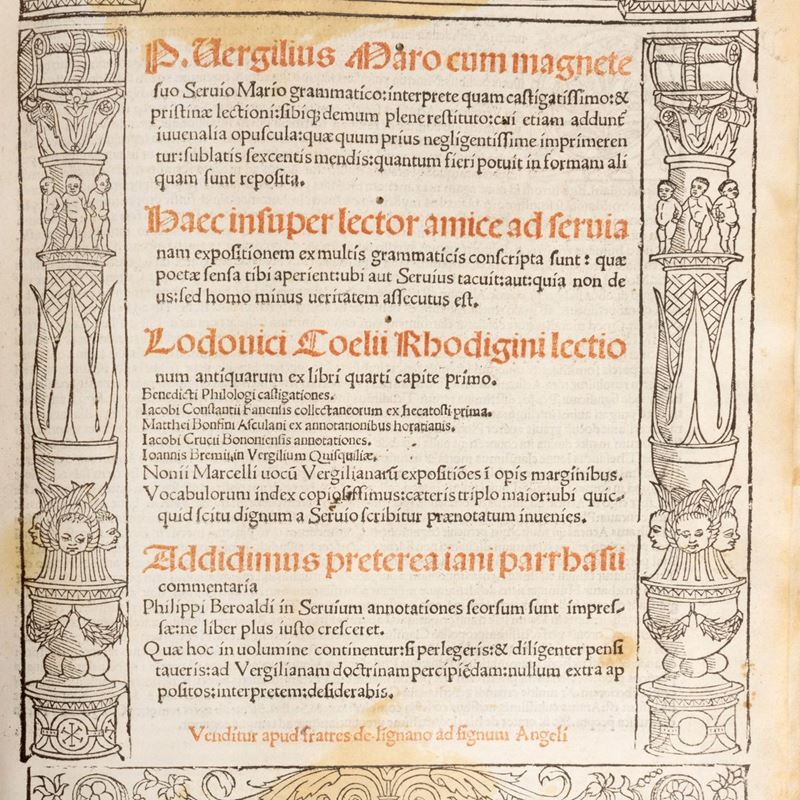 P. Uergilius Maro cum magnete
suo Seruio Mario grammatico: interprete quam castigatissimo: &
pristinæ lectioni: sibiq; demum plene restituto: cui etiam addunt̃
iuuenalia opuscula: quæ quum prius negligentissime imprimeren
tur: sublatis sexcentis mendis: quantum fieri potuit in formam ali
quam sunt reposita.
Haec insuper lector amice ad seruia
nam expositionem ex multis grammaticis conscripta sunt: quæ
poetæ sensa tibi aperient: ubi aut Seruius tacuit: aut: quia non de
us: sed homo minus ueritatem assecutus est.
Lodouici Coelii Rhodigini lectio
num antiquarum ex libri quarti capite primo.
Benedicti Philologi castigationes.
Iacobi Constantii Fanensis collectaneorum ex hecatosti prima.
Matthei Bonfini Asculani ex annotationibus horatianis.
Iacobi Crucii Bononiensis annotationes.
Ioannis Bremii in Vergilium Quisquiliæ.
Nonii Marcelli uocũ Vergilianarũ expositiões ĩ opis marginibus.
Vocabulorum index copiosissimus: cæteris triplo maior: ubi quic-
quid scitu dignum a Seruio scribitur prænotatum inuenies.
Addidimus preterea iani parrhasii
commentaria
Philippi Beroaldi in Seruium annotationes seorsum sunt impres-
sæ: ne liber plus iusto cresceret.
Quæ hoc in uolumine continentur: si perlegeris: & diligenter pensi
taueris: ad Vergilianam doctrinam percipiẽdam: nullum extra ap
positos: interpretem: desiderabis.
Venditur apud fratres de lignano ad signum Angeli